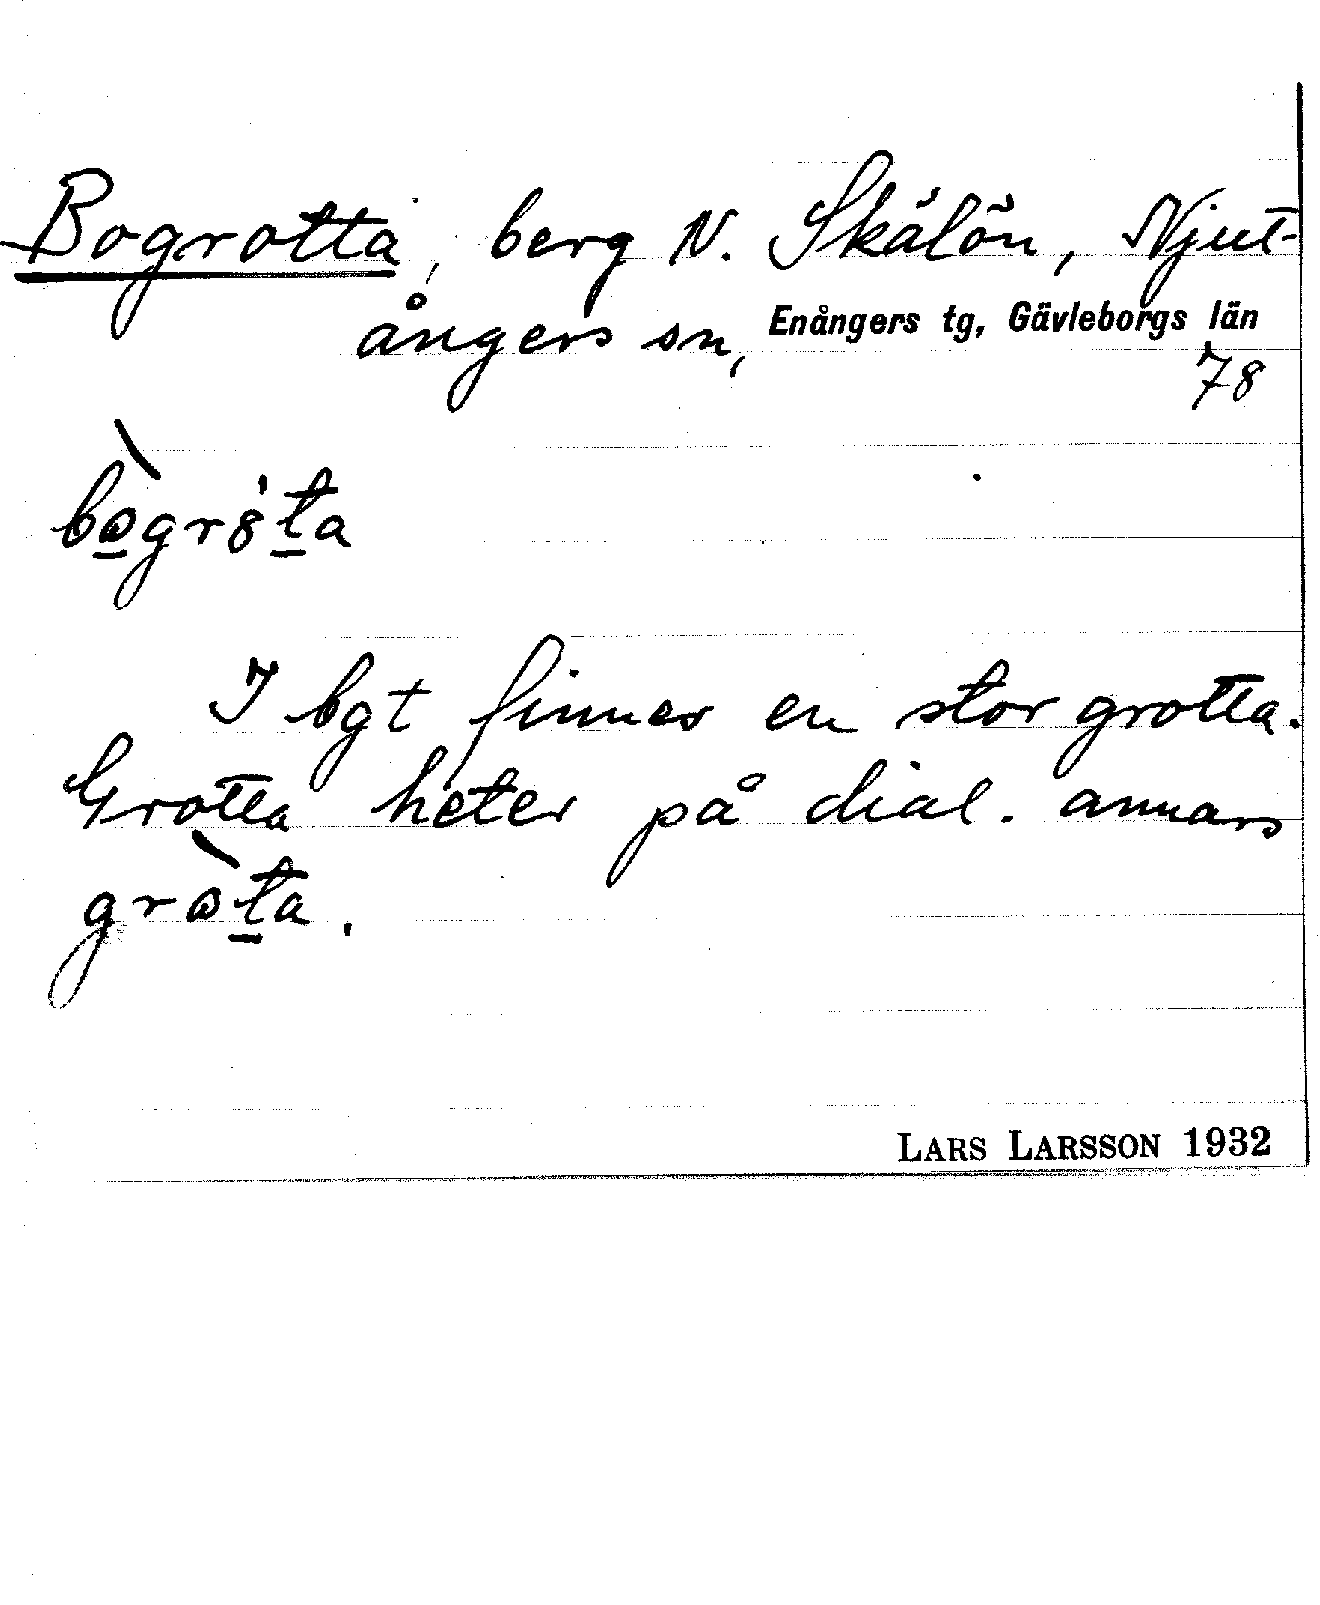 Bogrotta, berg N. Skälön, Njut-
ångers sn, Enångers tg, Gävleborgs län
78
bògr8̀ta
I bgt finnes en stor grotta.
Grotta heter på dial. annars
gròta.
LARS LARSSON 1932